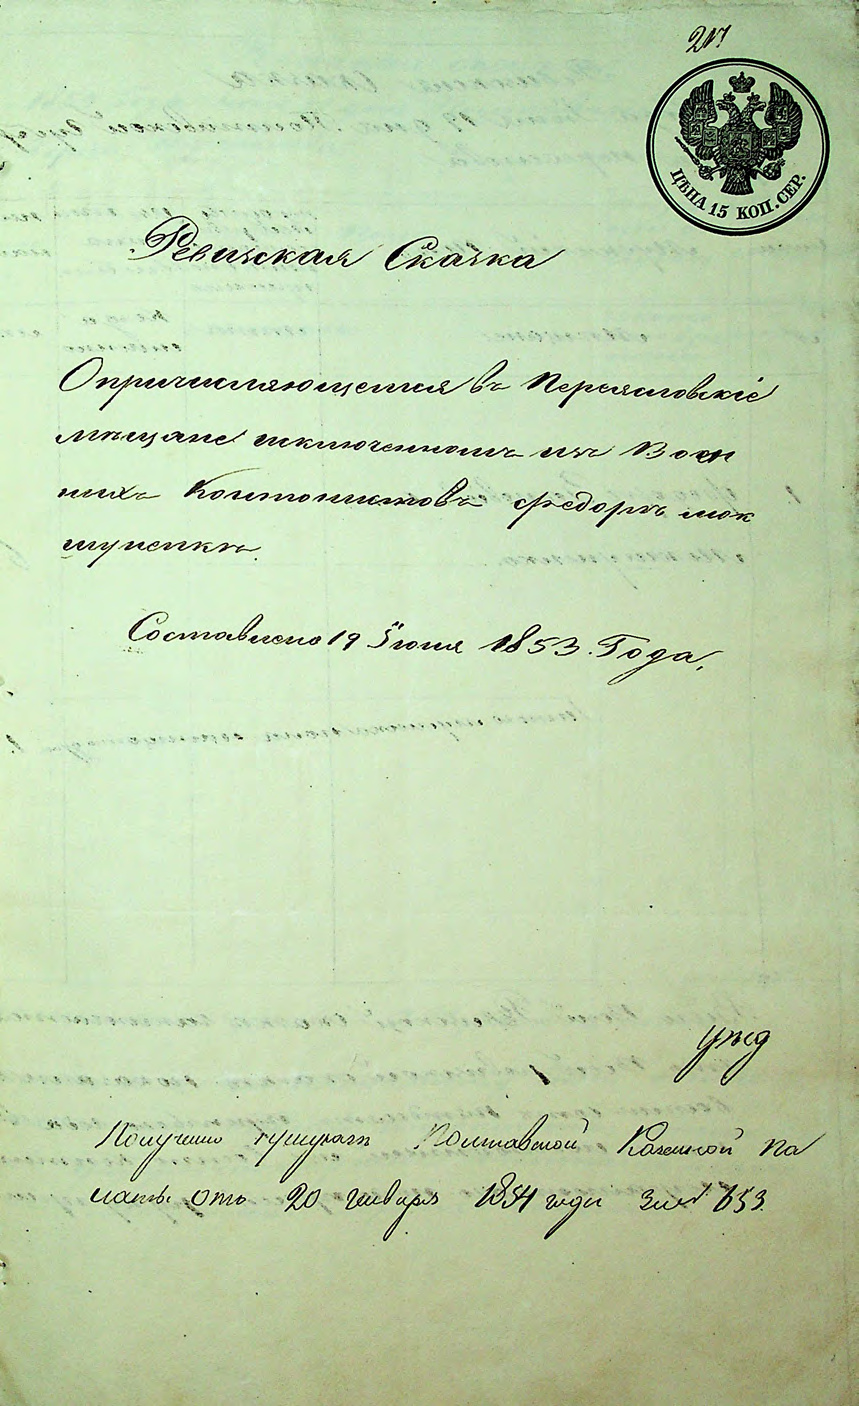 217
ЦѢНА 15 КОП. СЕР.
Ревизская Сказка
О причисляющемся въ Переясловскіе
мѣщане исключенномъ изъ Воен
ныхъ Контонистовъ Федорѣ мок
шуненкѣ.
Составлено 19 Іюня 1853. Года.
Получено при указѣ Полтавской Казенной Па
латы отъ 20 января 1854 года за № 653.